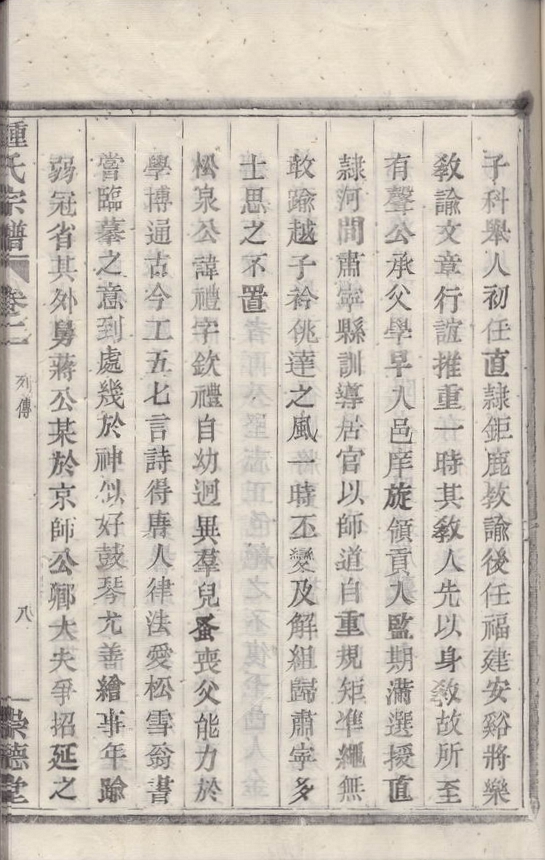 子科舉人初任直隸鉅鹿教諭後任福建安谿將樂
教諭文章行誼推重一時其教人先以身教故所至
有聲公承父學早入邑庠旋領貢入監期滿選授直
隸河間肅寧縣訓導居官以師道自重規矩准繩無
敢踰越子衿佻達之風一時丕變及解組歸肅寧多
士思之不置
松泉公諱禮字欽禮自幼迥異羣兒蚤喪父能力於
學博通古今工五七言詩得唐人律法愛松雪翁書
嘗臨摹之意到處幾於神似好鼓琴尤善繪事年踰
弱冠省其外舅蔣公某於京師公鄉大夫爭招延之
鍾氏宗譜 卷二 列傳 八 崇德堂